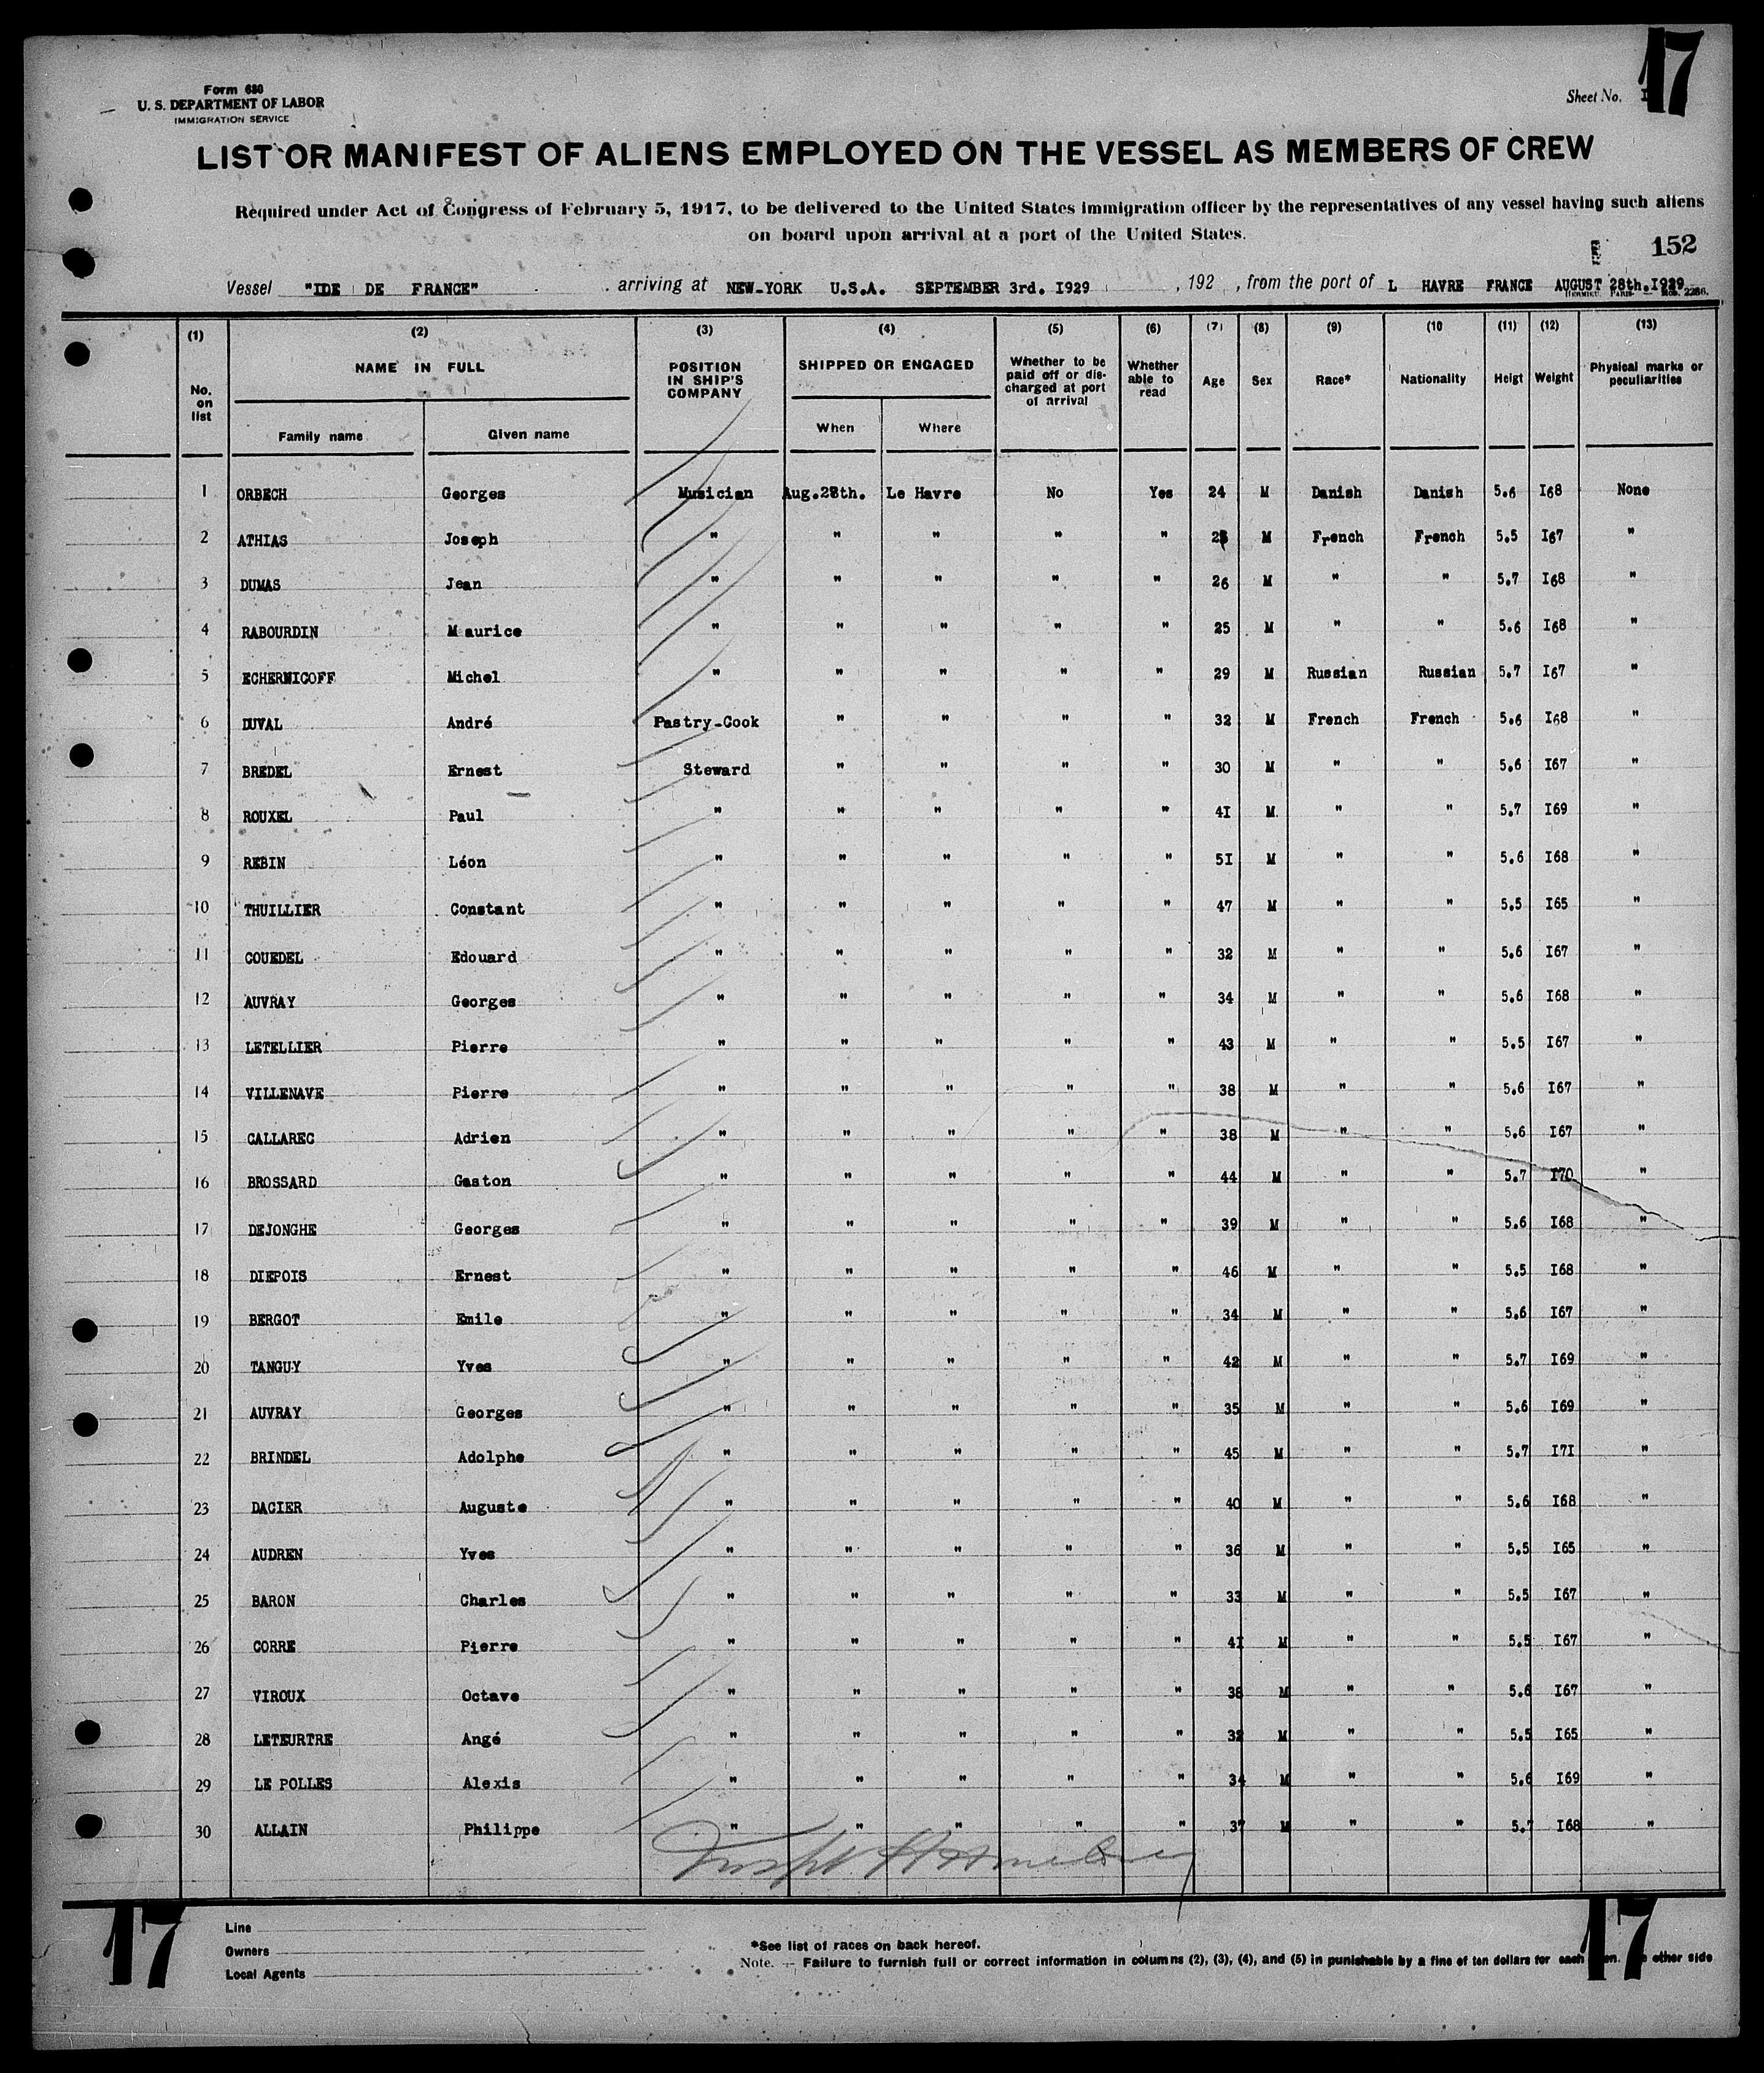 Form 680
U. S. DEPARTMENT OF LABOR
IMMIGRATION SERVICE
Sheet No. 17
LIST OR MANIFEST OF ALIENS EMPLOYED ON THE VESSEL AS MEMBERS OF CREW
Required under Act of Congress of February 5, 1917, to be delivered to the United States immigration officer by the representatives of any vessel having such aliens
on board upon arrival at a port of the United States.
152
Vessel "IDE DE FRANCE" arriving at NEW-YORK U.S.A. SEPTEMBER 3rd. I929 , 192 , from the port of L HAVRE FRANCE AUGUST 28th.I929
(1) (2) (3) (4) (5) (6) (7) (8) (9) (10 (11) (12) (13)
No. on list NAME IN FULL POSITION IN SHIP'S COMPANY SHIPPED OR ENGAGED Whether to be paid off or dis- charged at port of arrival Whether able to read Age Sex Race* Nationality Heigt Weight Physical marks or peculiarities
Family name Given name When Where
1 ORBECH Georges Musician Aug.28th. Le Havre No Yes 24 M Danish Danish 5.6 I68 None
2 ATHIAS Joseph " " " " " M French French 5.5 I67 "
3 DUMAS Jean " " " " " 26 M " " 5.7 I68 "
4 RABOURDIN Maurice " " " " " 25 M " " 5.6 I68 "
5 ECHERNIGOFF Michel " " " " " 29 M Russian Russian 5.7 I67 "
6 DUVAL André Pastry-Cook " " " " 32 M French French 5.6 I68 "
7 BREDEL Ernest Steward " " " " 30 M " " 5.6 I67 "
8 ROUXEL Paul " " " " " 4I M " " 5.7 I69 "
9 REBIN Léon " " " " " 5I M " " 5.6 I68 "
10 THUILLIER Constant " " " " " 47 M " " 5.5 I65 "
11 COUEDEL Edouard " " " " " 32 M " " 5.6 I67 "
12 AUVRAY Georges " " " " " 34 M " " 5.6 I68 "
13 LETELLIER Pierre " " " " " 43 M " " 5.5 I67 "
14 VILLENAVE Pierre " " " " " 38 M " " 5.6 I67 "
15 CALLAREC Adrien " " " " " 38 M " " 5.6 I67 "
16 BROSSARD Gaston " " " " " 44 M " " 5.7 I70 "
17 DEJONGHE Georges " " " " " 39 M " " 5.6 I68 "
18 DIEPOIS Ernest " " " " " 46 M " " 5.5 I68 "
19 BERGOT Emile " " " " " 34 M " " 5.6 I67 "
20 TANGUY Yves " " " " " 42 M " " 5.7 I69 "
21 AUVRAY Georges " " " " " 35 M " " 5.6 I69 "
22 BRINDEL Adolphe " " " " " 45 M " " 5.7 I7I "
23 DACIER Auguste " " " " " 40 M " " 5.6 I68 "
24 AUDREN Yves " " " " " 36 M " " 5.5 I65 "
25 BARON Charles " " " " " 33 M " " 5.5 I67 "
26 CORRE Pierre " " " " " 4I M " " 5.5 I67 "
27 VIROUX Octave " " " " " 38 M " " 5.6 I67 "
28 LETEURTRE Angé " " " " " 32 M " " 5.5 I65 "
29 LE POLLES Alexis " " " " " 34 M " " 5.6 I69 "
30 ALLAIN Philippe " " " " " 37 M " " 5.7 I68 "
17
Line
Owners
Local Agents
*See list of races on back hereof.
Note. — Failure to furnish full or correct information in columns (2), (3), (4), and (5) in punishable by a fine of ten dollars for each other side
17